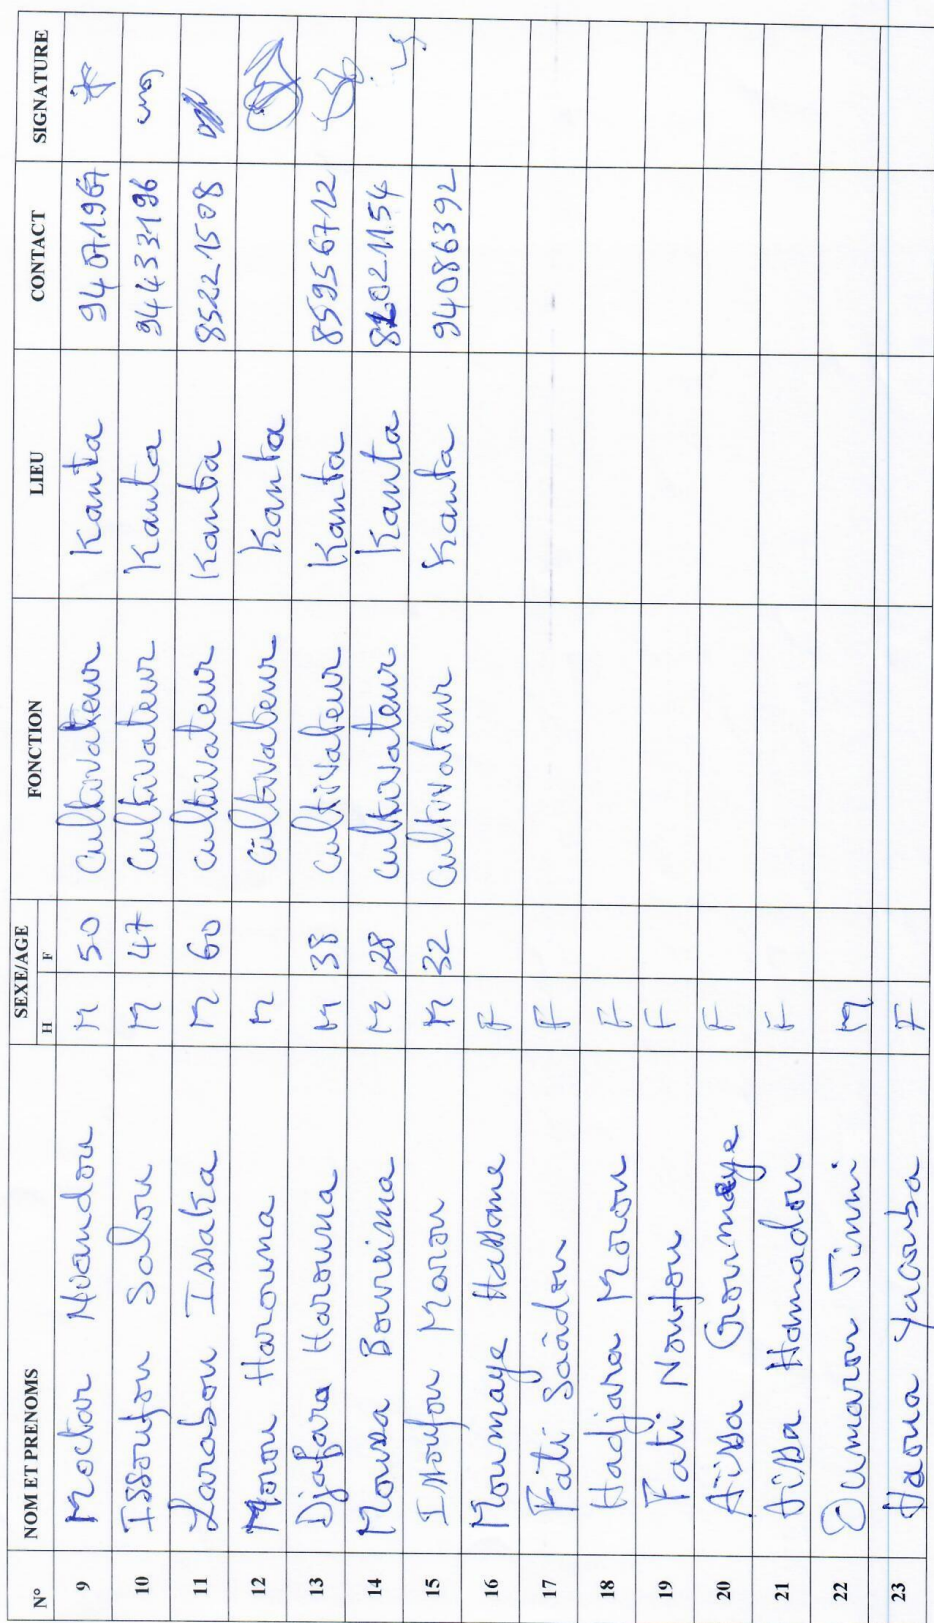 N° NOM ET PRENOMS SEXE/AGE FONCTION LIEU CONTACT SIGNATURE
H F
9 Moctar M 50 Cultivateur Kanta
10 Issoufou Salou M 47 Cultivateur Kanta 94433196
11 Larabou Issaka M 60 cultivateur Kanta 85221508
12 Morou Harouna M cultivateur Kanta
13 Djafara Harouna M 38 cultivateur Kanta 85956712
14 Moussa Boureima M 28 cultivateur Kanta
15 Issoufou Morou M 32 Cultivateur Kanta 94086392
16 Moumaye Hassane F
17 Fati Saâdou F
18 Hadjara Morou F
19 Fati Noufou F
20 Aïssa Gourmaye F
21 Aissa Hamadou F
22 Oumarou Timmi M
23 Haoua Yacouba F